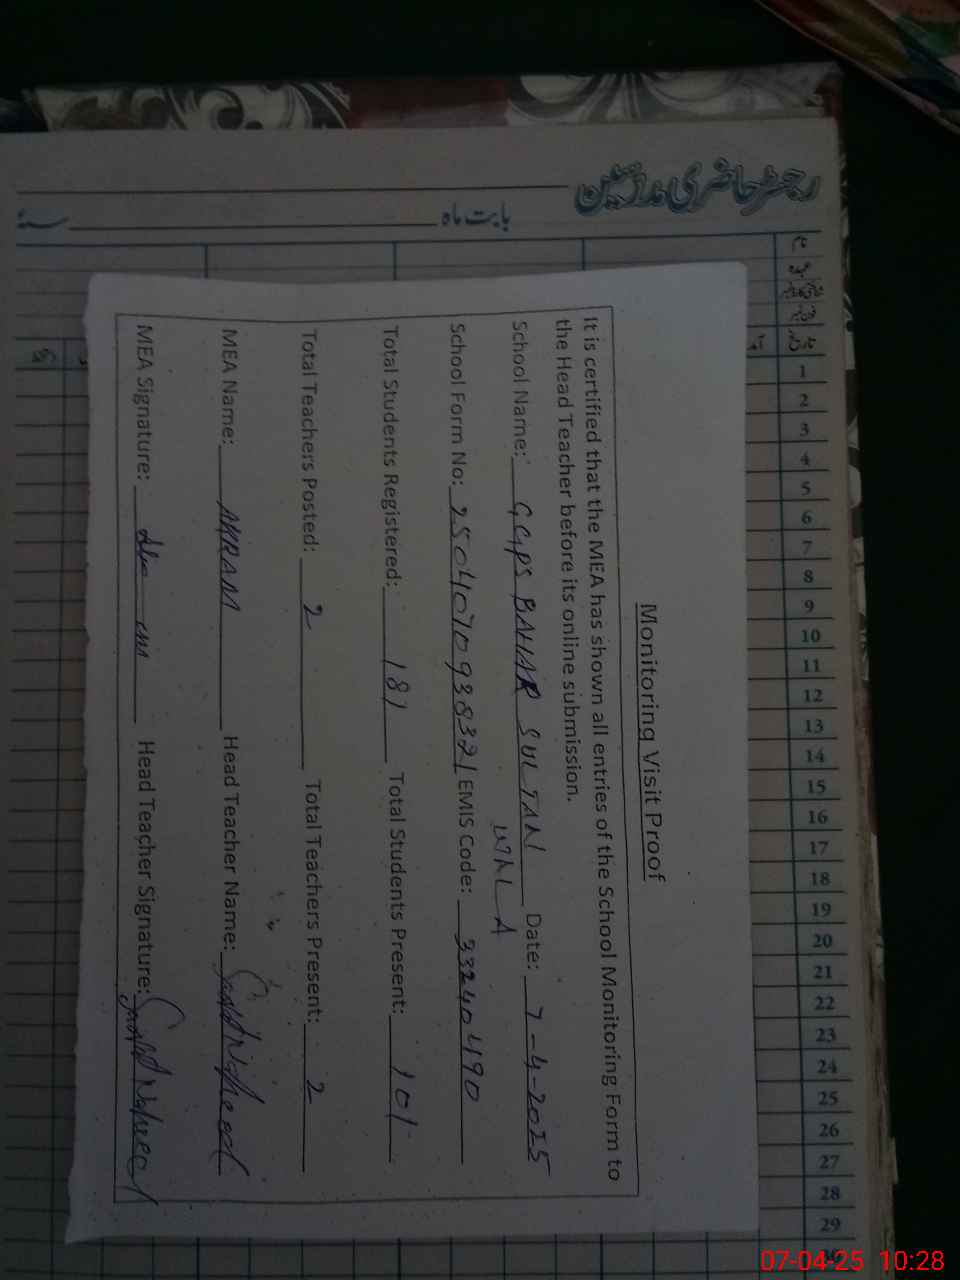 رجسٹر حاضری مدرسین
بابت ماہ
سنہ
1
2
3
4
5
6
7
8
9
10
11
12
13
14
15
16
17
18
19
20
21
22
23
24
25
26
27
28
29
Monitoring Visit Proof
It is certified that the MEA has shown all entries of the School Monitoring Form to
the Head Teacher before its online submission.
School Name: GGPS BAHAR SULTAN Date: 7-4-2025
WALA
School Form No: 2504070938321 EMIS Code: 33240490
Total Students Registered: 181 Total Students Present: 101
Total Teachers Posted: 2 Total Teachers Present: 2
MEA Name: AKRAM Head Teacher Name:
MEA Signature: Head Teacher Signature:
07-04-25 10:28